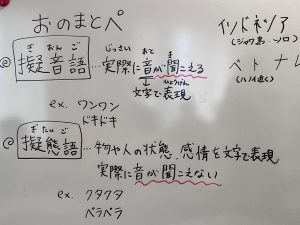 おのまとぺ
◎ 擬音語 …実際に音が聞こえる
ぎ おん ご
じっさい おと き
文字で表現
ひょうげん
ex. ワンワン
ドキドキ
◎ 擬態語 …物や人の状態、感情を文字で表現
ぎ たい ご
実際に音が聞こえない
ex. クタクタ
ペラペラ
インドネシア
(ジャワ島
ベトナ